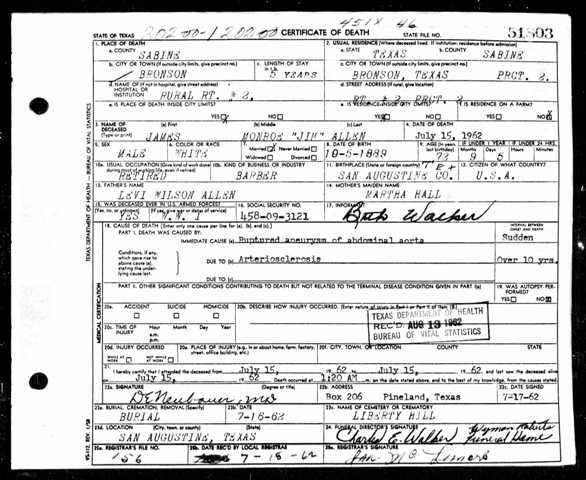 451X 46
STATE OF TEXAS 20200-120200 CERTIFICATE OF DEATH STATE FILE NO. 51803
1. PLACE OF DEATH 2. USUAL RESIDENCE (Where deceased lived. If institution: residence before admission)
a. COUNTY SABINE a. STATE TEXAS b. COUNTY SABINE
b. CITY OR TOWN (If outside city limits, give precinct no.) c. LENGTH OF STAY c. CITY OR TOWN (If outside city limits, give precinct no.)
BRONSON 5 YEARS BRONSON, TEXAS PRCT. 2.
d. NAME OF (If not in hospital, give street address) HOSPITAL OR INSTITUTION d. STREET ADDRESS (If rural, give location)
RURAL RT. # 2. RT # 2 PRCT.
e. IS PLACE OF DEATH INSIDE CITY LIMITS? e. IS RESIDENCE INSIDE CITY LIMITS? f. IS RESIDENCE ON A FARM?
YES NO YES NO YES NO
3. NAME OF DECEASED (Type or print) (a) First (b) Middle (c) Last 4. DATE OF DEATH
JAMES MONROE "JIM" ALLEN July 15, 1962
5. SEX 6. COLOR OR RACE 7. Married Never Married Widowed Divorced 8. DATE OF BIRTH 9. AGE (In years last birthday) IF UNDER 1 YEAR IF UNDER 24 HRS.
MALE WHITE 10-5-1889 Months Days Hours Minutes
10a. USUAL OCCUPATION (Give kind of work done during most of working life, even if retired) 10b. KIND OF BUSINESS OR INDUSTRY 11. BIRTHPLACE (State or foreign country) 12. CITIZEN OF WHAT COUNTRY?
RETIRED BARBER SAN AUGUSTINE CO. U.S.A.
13. FATHER'S NAME 14. MOTHER'S MAIDEN NAME
LEVI WILSON ALLEN MARTHA HALL
15. WAS DECEASED EVER IN U.S. ARMED FORCES? 16. SOCIAL SECURITY NO. 17. INFORMANT
(Yes, no, or unknown) (If yes, give war or dates of service)
YES W.W. I 458-09-3121 Walker
18. CAUSE OF DEATH [Enter only one cause per line for (a), (b), and (c).] INTERVAL BETWEEN ONSET AND DEATH
PART I. DEATH WAS CAUSED BY:
IMMEDIATE CAUSE (a) Ruptured aneurysm of abdominal aorta Sudden
Conditions, if any, which gave rise to above cause (a), stating the underlying cause last.
DUE TO (b) Arteriosclerosis Over 10 yrs.
DUE TO (c)
PART II. OTHER SIGNIFICANT CONDITIONS CONTRIBUTING TO DEATH BUT NOT RELATED TO THE TERMINAL DISEASE CONDITION GIVEN IN PART I (a) 19. WAS AUTOPSY PERFORMED?
YES NO
20a. ACCIDENT SUICIDE HOMICIDE 20b. DESCRIBE HOW INJURY OCCURRED. (Enter nature of injury in Part I or Part II of item 18.)
TEXAS DEPARTMENT OF HEALTH
REC'D. AUG 13 1962
BUREAU OF VITAL STATISTICS
20c. TIME OF INJURY Hour Month Day Year
a.m.
p.m.
20d. INJURY OCCURRED 20e. PLACE OF INJURY (e.g., in or about home, farm, factory, street, office building, etc.) 20f. CITY, TOWN, OR LOCATION COUNTY STATE
WHILE AT WORK NOT WHILE AT WORK
21. I hereby certify that I attended the deceased from July 15, 19 62 to July 15, 19 62 and last saw the deceased alive
on July 15, 19 62 Death occurred at 1:20 AM m. on the date stated above, and to the best of my knowledge, from the causes stated.
22a. SIGNATURE (Degree or title) 22b. ADDRESS 22c. DATE SIGNED
D E Neubauer, MD Box 206 Pineland, Texas 7-17-62
23a. BURIAL, CREMATION, REMOVAL (Specify) 23b. DATE 23c. NAME OF CEMETERY OR CREMATORY
BURIAL 7-16-62 LIBERTY HILL
23d. LOCATION (City, town, or county) (State) 24. FUNERAL DIRECTOR'S SIGNATURE
SAN AUGUSTINE, TEXAS Charles E. Walker Wyman Roberts Funeral Home
25a. REGISTRAR'S FILE NO. 25b. DATE REC'D BY LOCAL REGISTRAR 25c. REGISTRAR'S SIGNATURE
156 7-18-62
TEXAS DEPARTMENT OF HEALTH — BUREAU OF VITAL STATISTICS
MEDICAL CERTIFICATION